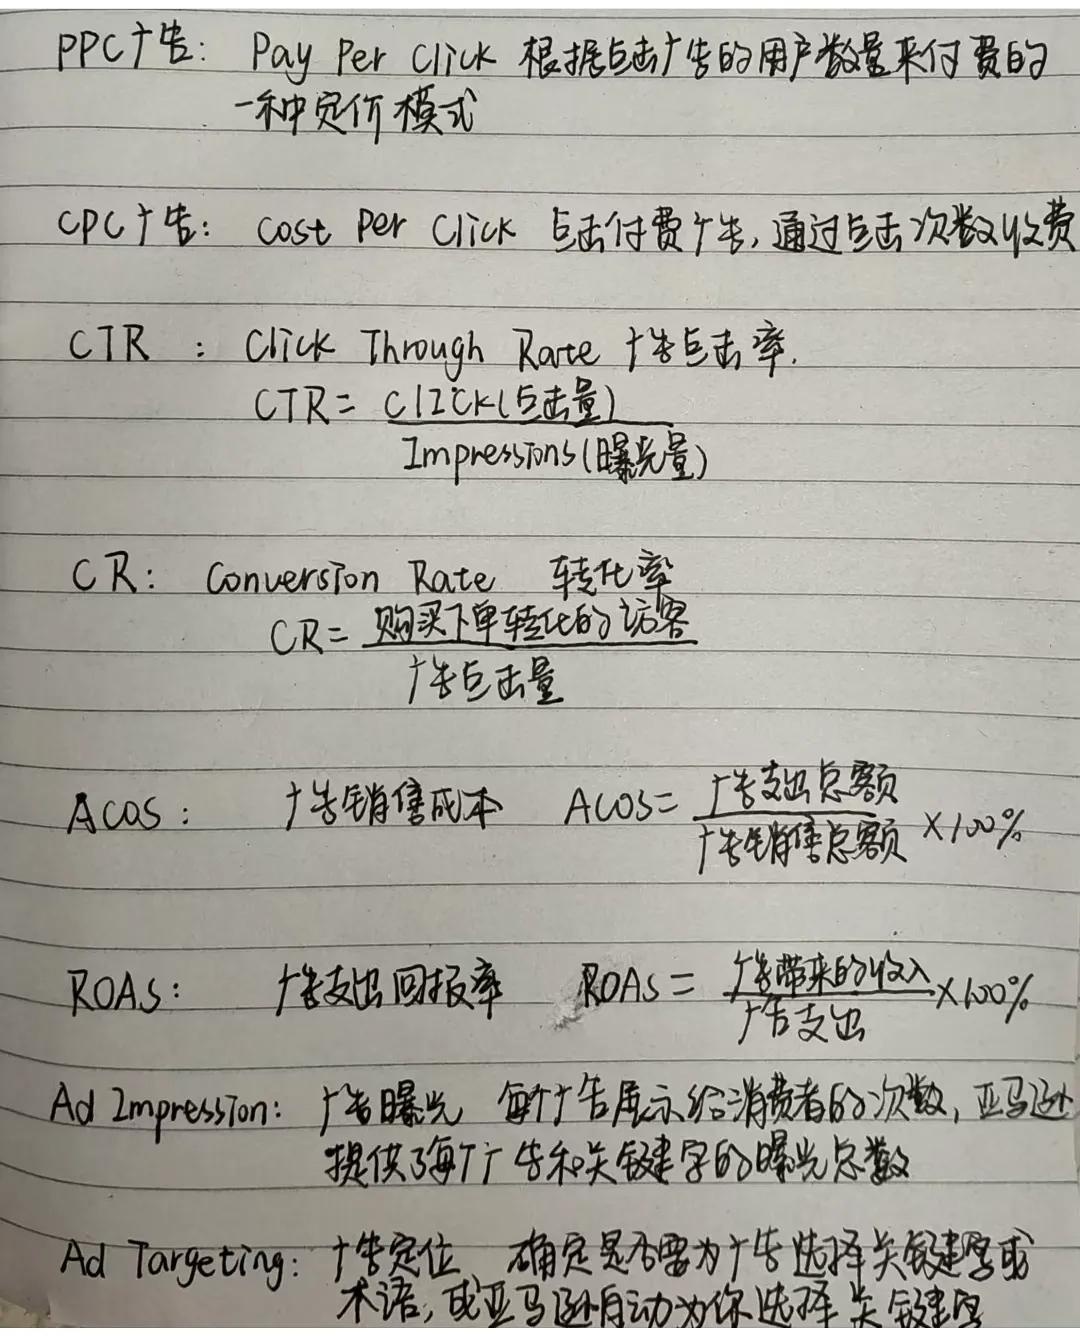 PPC广告: Pay Per Click 根据点击广告的用户数量来付费的
一种定价模式
CPC广告: Cost Per Click 点击付费广告,通过点击次数收费
CTR : Click Through Rate 广告点击率.
CTR = CLICK(点击量)
Impressions(曝光量)
CR: Conversion Rate 转化率
CR= 购买下单转化的访客
广告点击量
ACOS: 广告销售成本 ACOS= 广告支出总额
广告销售总额 ×100%
ROAS: 广告支出回报率 ROAS = 广告带来的收入 ×100%
广告支出
Ad Impression: 广告曝光 每个广告展示给消费者的次数,亚马逊
提供了每个广告和关键字的曝光总数
Ad Targeting: 广告定位 确定是否需要为广告选择关键字或
术语,或亚马逊自动为你选择关键字